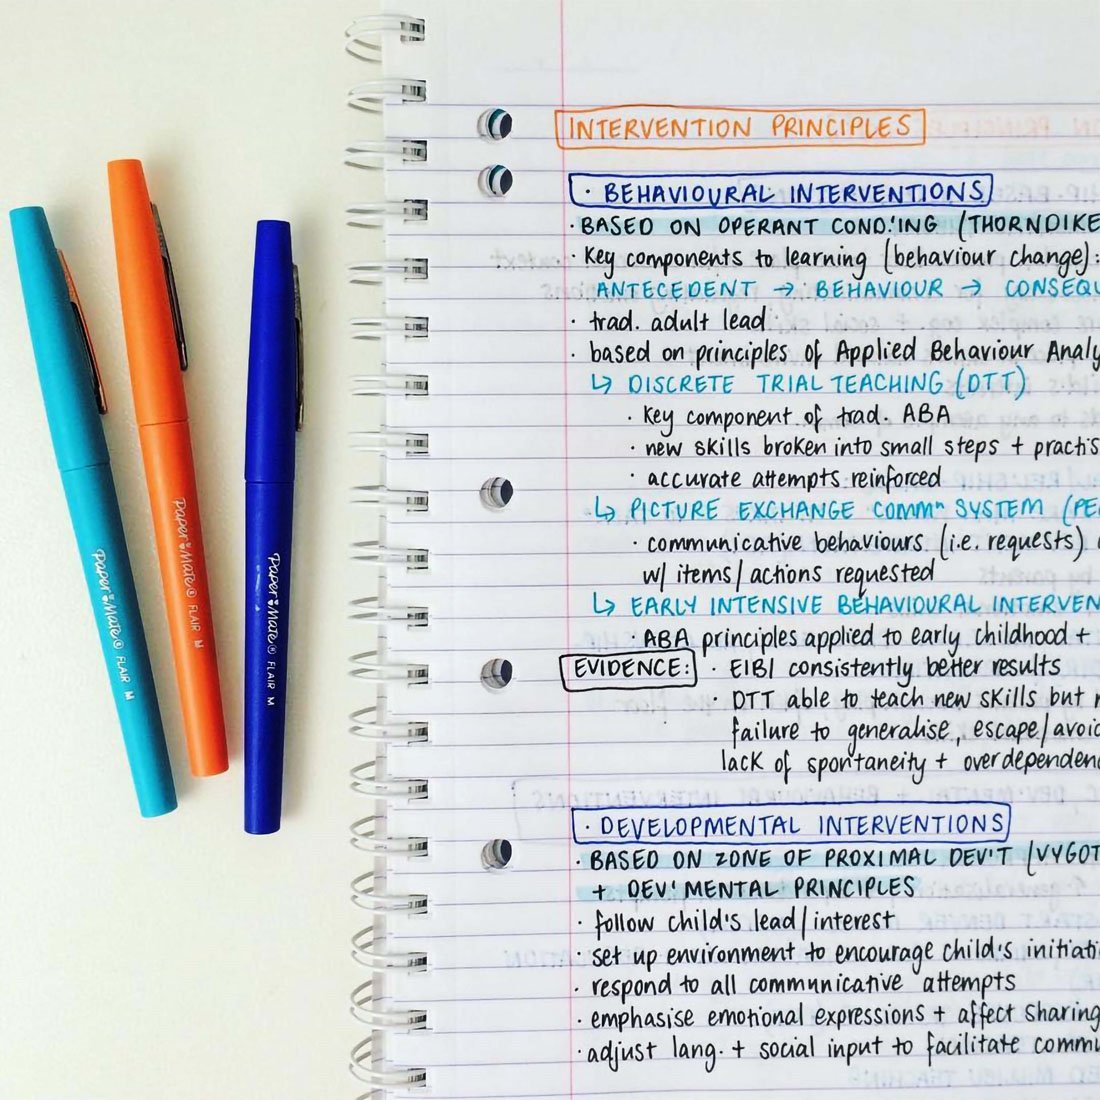 Paper Mate® FLAIR M
Paper Mate® FLAIR M
Paper Mate® FLAIR M
INTERVENTION PRINCIPLES
· BEHAVIOURAL INTERVENTIONS
· BASED ON OPERANT COND.'ING (THORNDIKE
· Key components to learning (behaviour change):
ANTECEDENT → BEHAVIOUR → CONSEQU
· trad. adult lead
· based on principles of Applied Behaviour Analy
↳ DISCRETE TRIAL TEACHING (DTT)
· Key component of trad. ABA
· new skills broken into small steps + practis
· accurate attempts reinforced
↳ PICTURE EXCHANGE COMMⁿ SYSTEM (PE
· communicative behaviours (i.e. requests)
w/ items/actions requested
↳ EARLY INTENSIVE BEHAVIOURAL INTERVEN
· ABA principles applied to early childhood +
EVIDENCE: · EIBI consistently better results
· DTT able to teach new skills but
failure to generalise, escape/avoi
lack of spontaneity + overdependen
· DEVELOPMENTAL INTERVENTIONS
· BASED ON ZONE OF PROXIMAL DEV'T (VYGOT
+ DEV'MENTAL PRINCIPLES
· follow child's lead/interest
· set up environment to encourage child's initiati
· respond to all communicative attempts
· emphasise emotional expressions + affect sharing
· adjust lang. + social input to facilitate commu